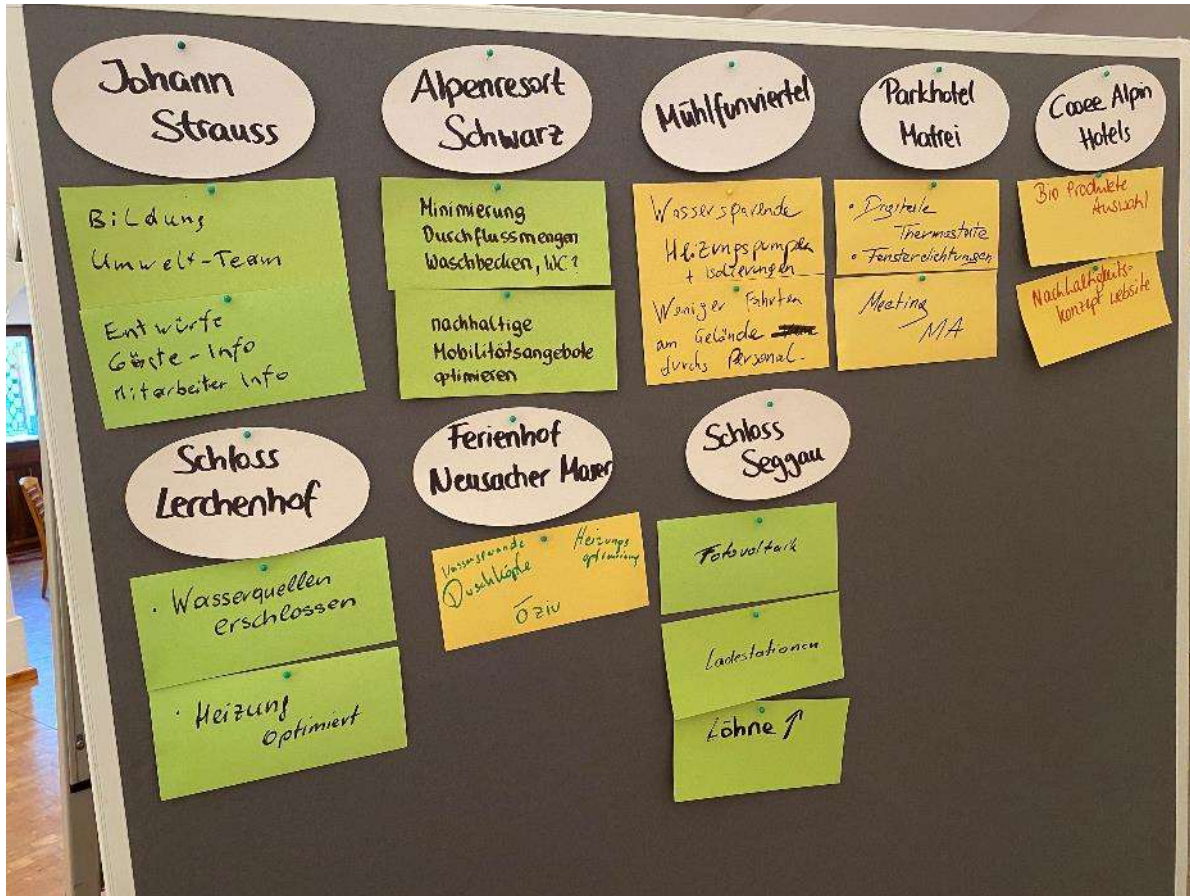 Johann
Strauss
Bildung
Umwelt-Team
Entwürfe
Gäste-Info
Mitarbeiter Info
Alpenresort
Schwarz
Minimierung
Durchflussmengen
Waschbecken, WC?
nachhaltige
Mobilitätsangebote
optimieren
Mühlfunviertel
Wassersparende
Heizungspumpen
+ Isolierungen
Weniger Fahrten
am Gelände
durchs Personal.
Parkhotel
Matrei
• Digitale
Thermostate
• Fensterdichtungen
Meeting
MA
Cooee Alpin
Hotels
Bio Produkte
Auswahl
Nachhaltigkeits-
konzept website
Schloss
Lerchenhof
· Wasserquellen
erschlossen
· Heizung
optimiert
Ferienhof
Neusacher Moser
Wassersparende
Duschköpfe
Heizungs
optimierung
ÖZIV
Schloss
Seggau
Fotovoltaik
Ladestationen
Löhne ↑